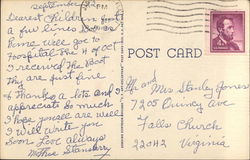 September
Dearest Children
a few lines
will go to
Hospital the 4 of Oct
I received the Boot
They are just fine
& Thanks a lots and I
appreciate so much
I hope you all are well
I will write you
soon Love always
Mother Stansberry
POST CARD
Mr and Mrs Stanley Jones
7205 Quincy Ave
Falls Church
22042 Virginia